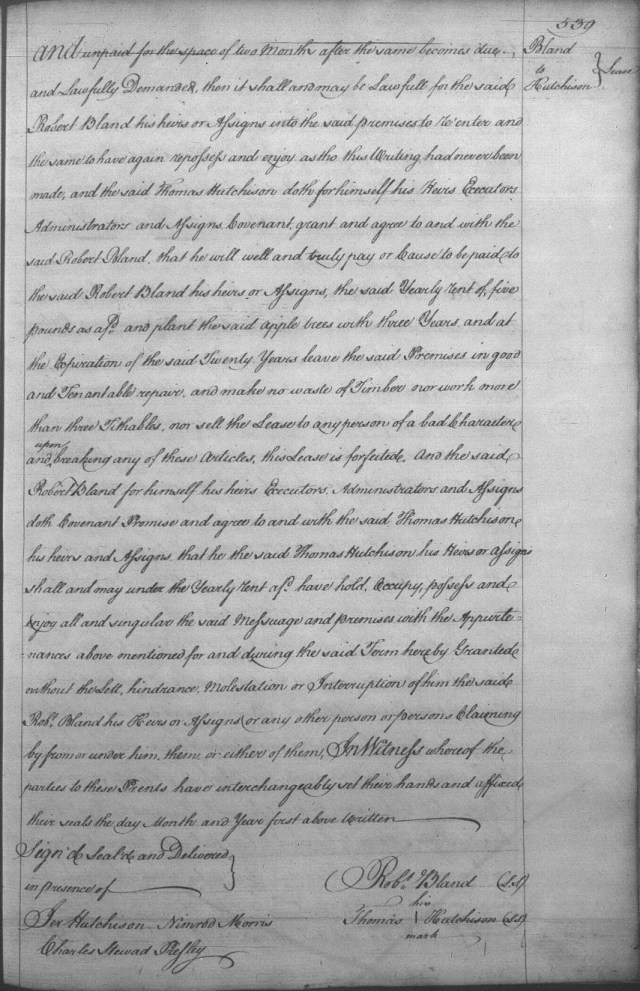 539
Bland
to
Hutchison } Lease
and unpaid for the space of two Months after the same becomes due,
and Lawfully Demanded, then it shall and may be Lawfull for the said
Robert Bland his heirs or Assigns into the said premises to re'enter and
the same to have again reposess and enjoy as tho this Writing had never been
made, and the said Thomas Hutchison doth for himself his Heirs Executors
Administrators and Assigns, Covenant, grant and agree to and with the
said Robert Bland, that he will well and truly pay or Cause to be paid to
the said Robert Bland his heirs or Assigns, the said Yearly rent of, five
pounds as afsd. and plant the said apple trees with three Years, and at
the Expiration of the said Twenty Years leave the said Premises in good
and Tenantable repair, and make no waste of Timber nor work more
than three Tithables, nor sell the Lease to any person of a bad Character
upon
and, breaking any of these Articles, this Lease is forfeitide, And the said
Robert Bland for himself his heirs Executors, Administrators and Assigns
doth Covenant Promise and agree to and with the said Thomas Hutchison
his heirs and Assigns, that he the said Thomas Hutchison his Heirs or assigns
shall and may under the Yearly rent afsd. have hold, Occupy, possess and
Enjoy all and singular the said Messuage and premises with the Appurte-
-nances above mentioned for and during the said Term hereby Granted
without the Lett, hindrance, Molestation or Interruption of him the said
Robt. Bland his Heirs or Assigns or any other person or persons Claiming
by from or under him, them, or either of them, In Witness whereof the
parties to these Prents have interchangeably set their hands and affixed
their seals the day Month and Year first above Written
Sign'd Seal'd and Delivered
in presence of
Robt. Bland (LS)
Jer Hutchison Nimrod Morris
his
Thomas Hutchison (LS)
mark
Charles Steward Presley